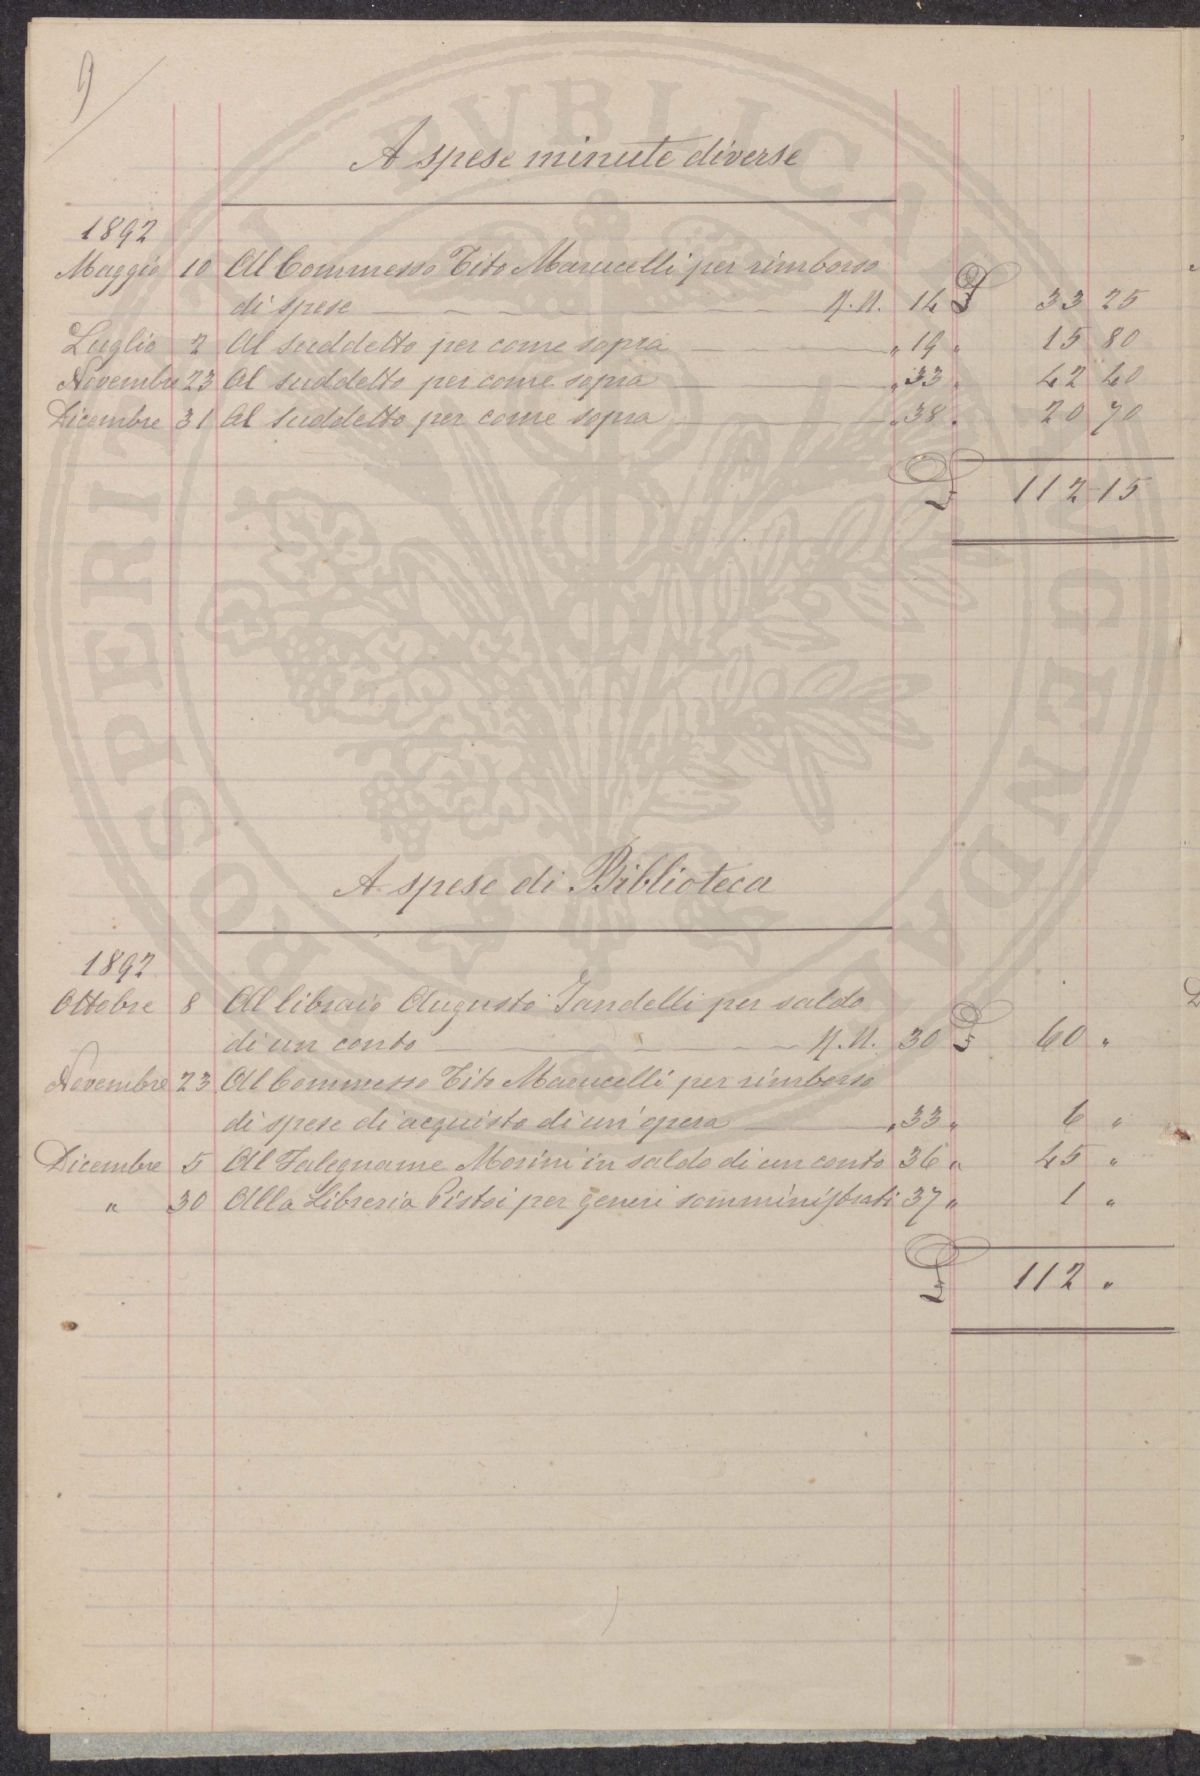 9
A spese minute diverse
1892
Maggio 10 Al Commesso Tito Marucelli per rimborso
di spese N.M. 14 £ 33 25
Luglio 2 Al suddetto per come sopra " 19 " 15 80
Novembre 23 Al suddetto per come sopra " 33 " 42 40
Dicembre 31 Al suddetto per come sopra " 38 " 20 70
£ 112 15
A spese di Biblioteca
1892
Ottobre 8 Al libraio Augusto Jandelli per saldo
di un conto N.M. 30 £ 60 "
Novembre 23 Al Commesso Tito Marucelli per rimborso
di spese di acquisto di un'opera " 33 " 6 "
Dicembre 5 Al Falegname Morini in saldo di un conto 36 " 45 "
" 30 Alla Libreria Pistoi per generi somministrati 37 " 1 "
£ 112 "
PROSPERITATI PUBLICAE AUGENDAE